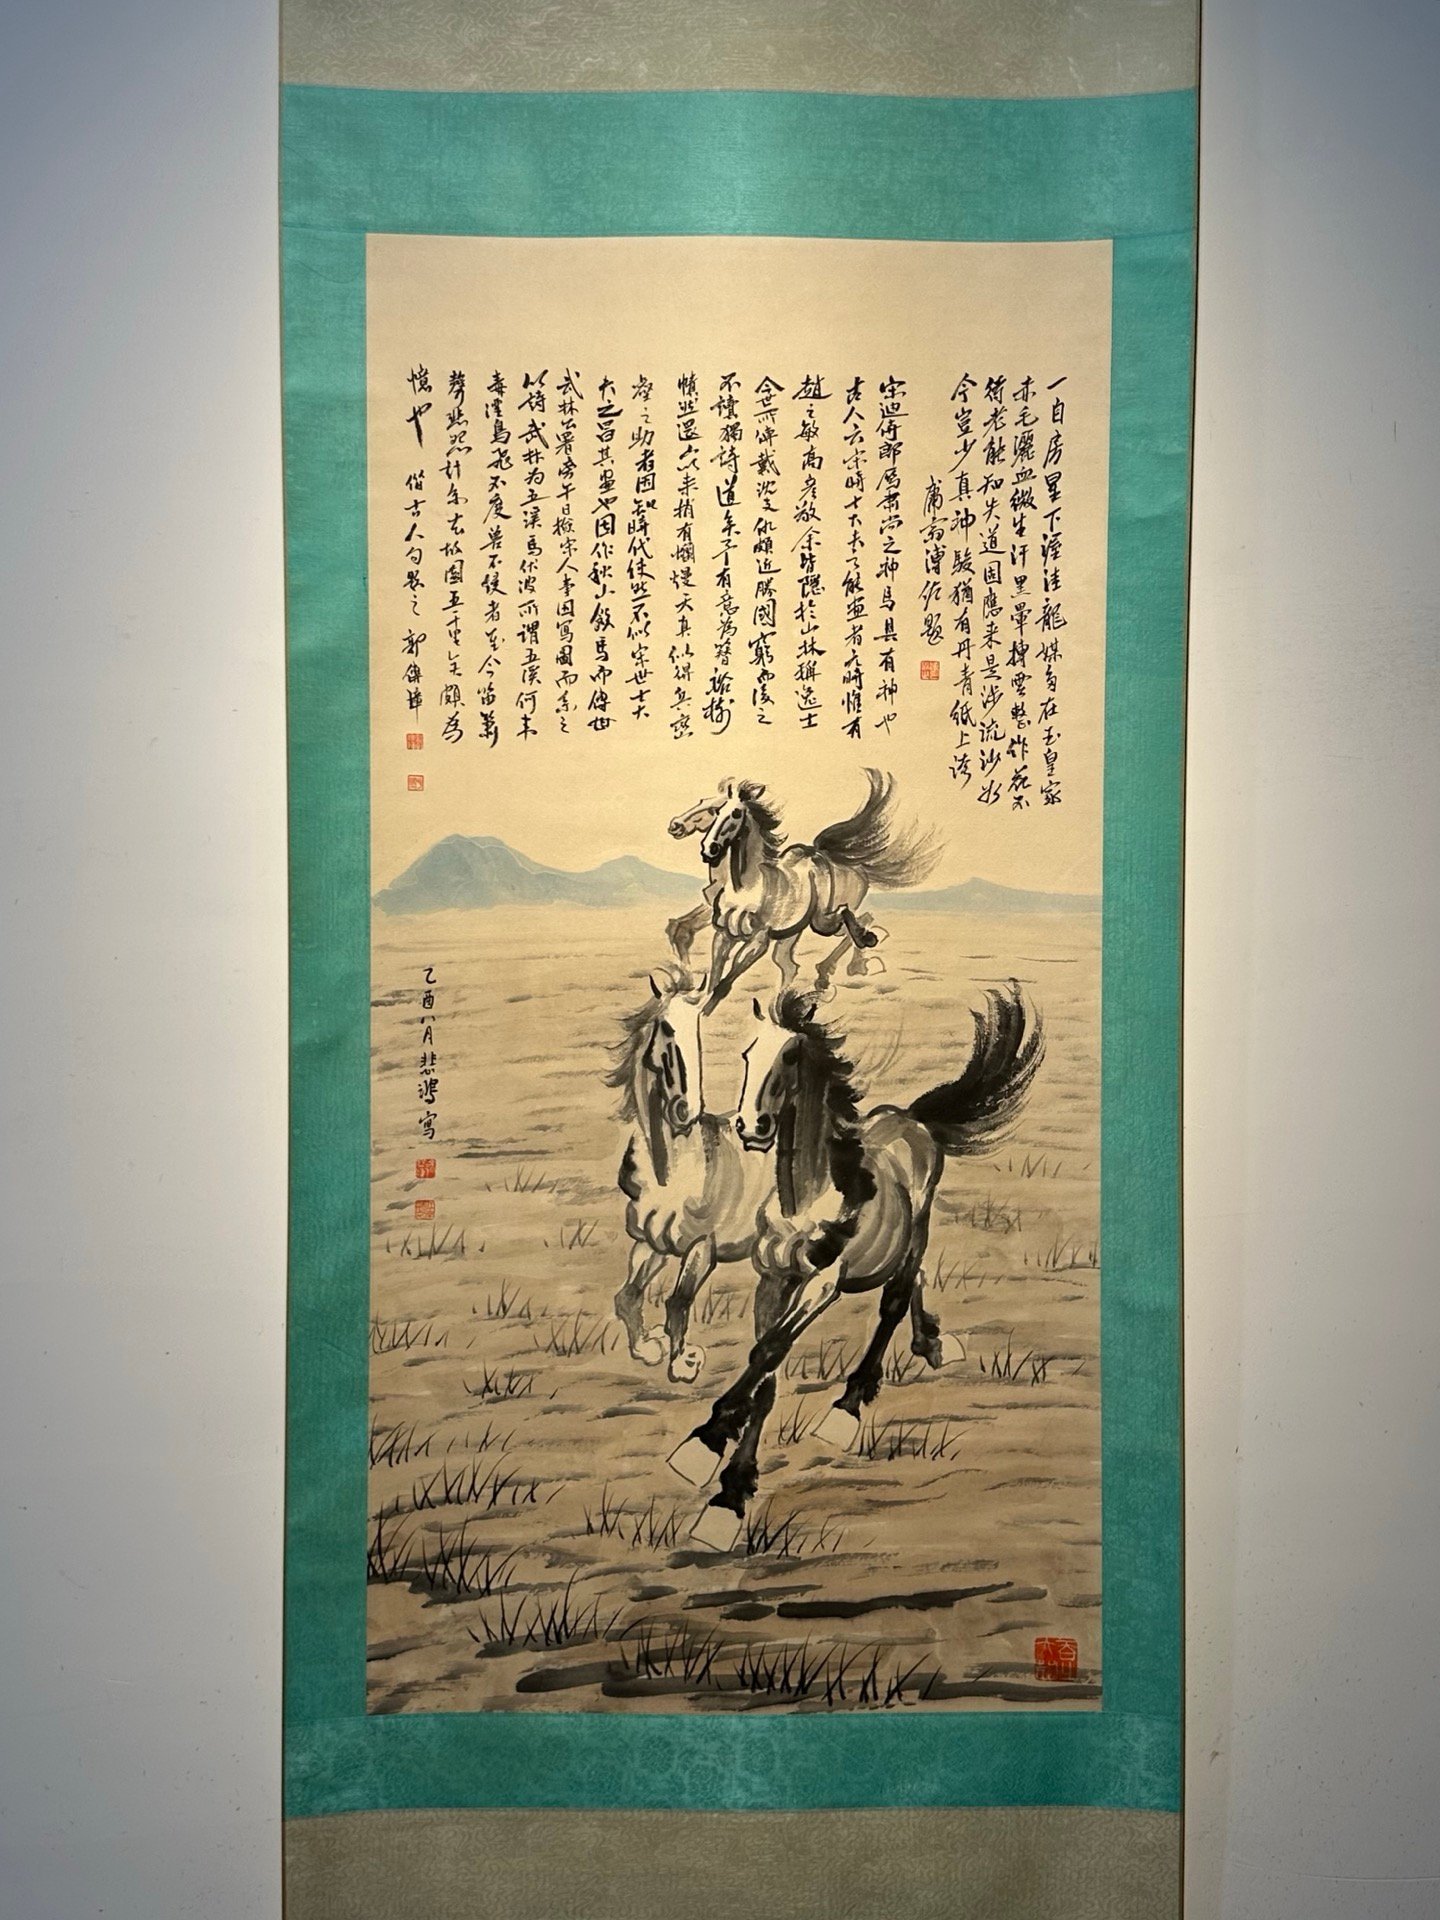 一自房星下渥洼龍媒多在玉皇家
赤毛灑血微生汗黑暈摶雲整作花不
待老能知失道固應来是涉流沙於
今豈少真神駿猶有丹青紙上誇
庸齋溥佐題
宋迪侍郎馬肅尚之神馬具有神也
古人云宋時士大夫多能畫者元時惟有
趙之敏高彦敬余皆隱於山林稱逸士
今世所傳戴沈文仇頗近勝國窮而後工
不讓獨詩道矣予有意為
憤然還六以来稍有爛熳天真似得兵
之助者因知時代使然不似宋世士大
夫之昌其畫也因作秋山飲馬而傳世
武林公署旁午日撿宋人事因寫圖而系之
以詩武林为五溪馬伏波所謂五溪何
毒淫鳥飛不度兽不侵者至今笛簫
聲悲怨計余去故園五千里矣頗為
憶也 偕古人句題之 郭傳璋
乙酉八月悲鴻寫